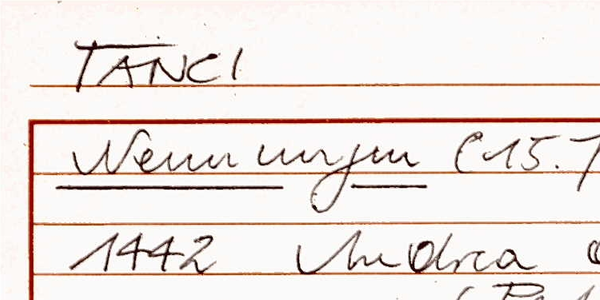 TANCI
Nennungen (15.
1442 Andrea